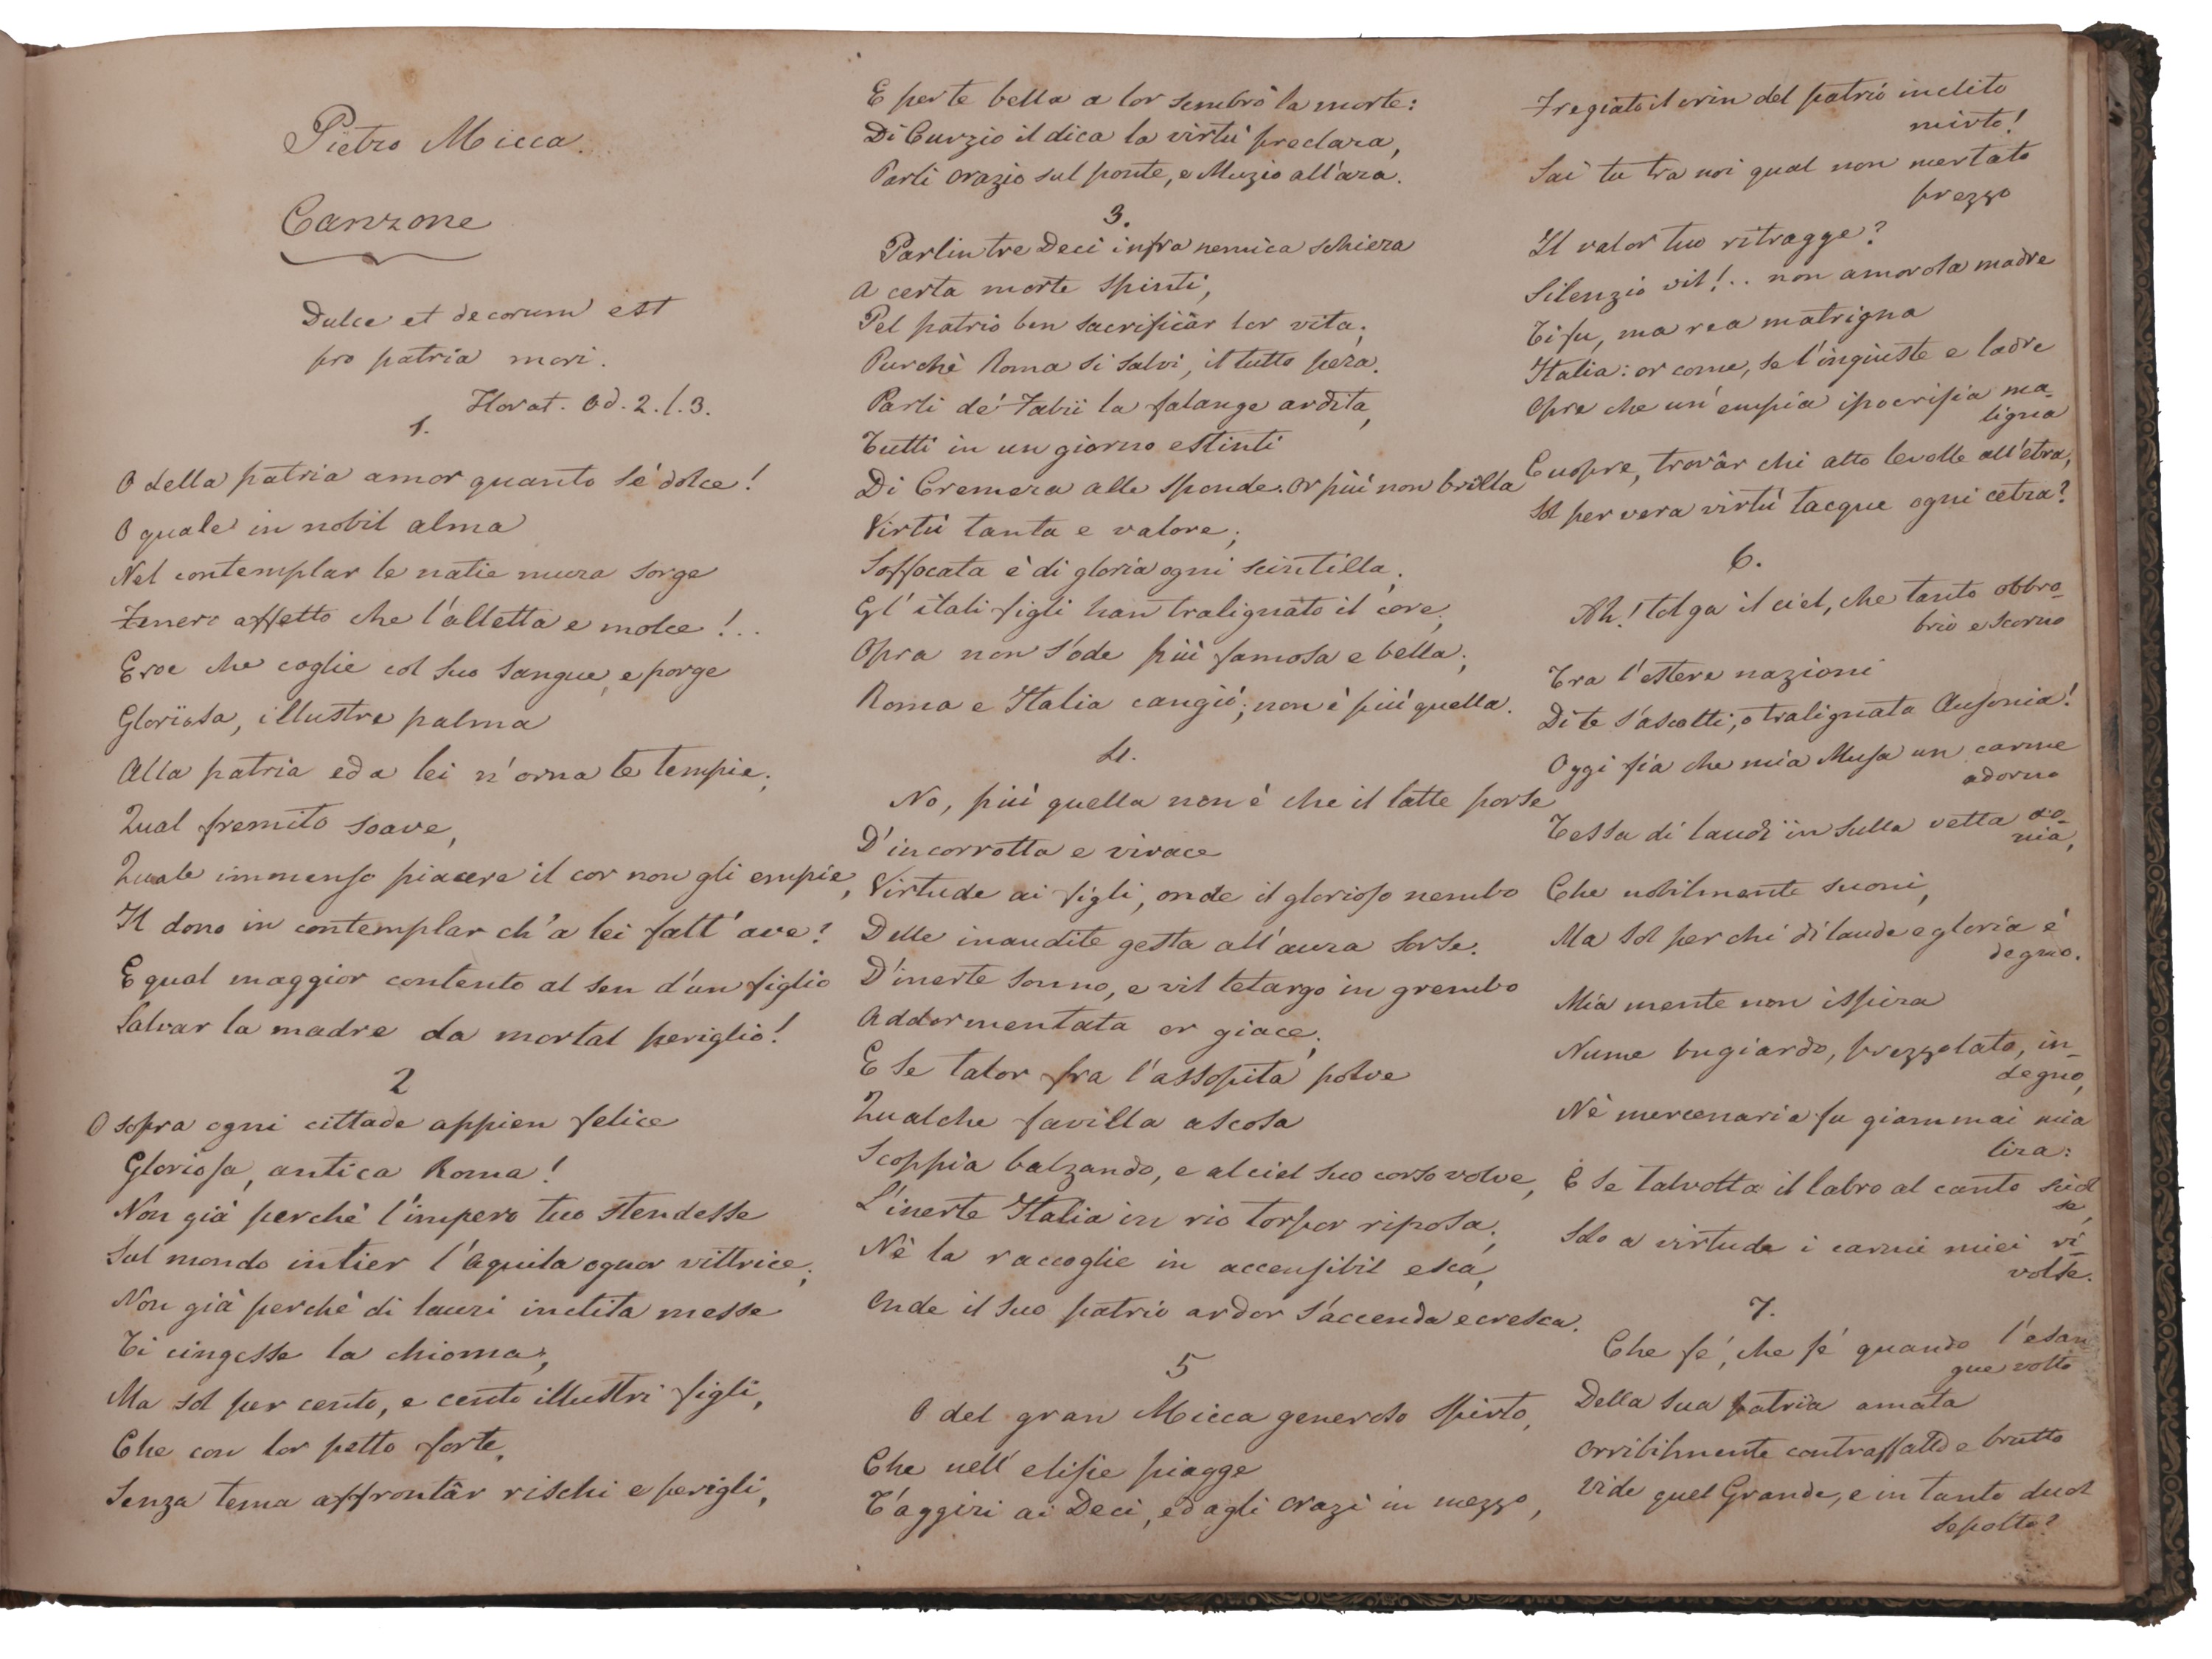 Pietro Micca.
Canzone
Dulce et decorum est
pro patria mori.
Horat. Od. 2. l. 3.
1.
O della patria amor quanto sè dolce!
O quale in nobil alma
Nel contemplar le natie mura sorge
Tenero affetto che l'alletta e molce!..
Eroe che coglie col suo sangue, e porge
Glorïosa, illustre palma
Alla patria ed a lei n'orna le tempie;
Qual fremito soave,
Quale immenso piacere il cor non gli empie,
Il dono in contemplar ch'a lei fatt'ave?
E qual maggior contento al sen d'un figlio
Salvar la madre da mortal periglio!
2
O sopra ogni cittade appien felice
Gloriosa, antica Roma!
Non già perchè l'impero tuo stendesse
Sul mondo intier l'Aquila ognor vittrice;
Non già perchè di lauri inclita messe
Ti cingesse la chioma;
Ma sol per cento, e cento illustri figli,
Che con lor petto forte,
Senza tema affrontâr rischi e perigli,
E per te bella a lor sembrò la morte:
Di Curzio il dica la virtù preclara,
Parli Orazio sul ponte, e Muzio all'ara.
3.
Parlin tre Deci infra nemica schiera
A certa morte spinti,
Pel patrio ben sacrificâr lor vita;
Purchè Roma si salvi, il tutto pera.
Parli de' Fabii la falange ardita,
Tutti in un giorno estinti
Di Cremera alle sponde. Or più non brilla
Virtù tanta e valore;
Soffocata è di gloria ogni scintilla;
Gl'itali figli han tralignato il core;
Opra non s'ode più famosa e bella;
Roma e Italia cangiò; non è più quella.
4.
No, più quella non è che il latte porse
D'incorrotta e vivace
Virtude ai figli, onde il glorioso nembo
Delle inaudite gesta all'aura sorse.
D'inerte sonno, e vil letargo in grembo
Addormentata or giace;
E se talor fra l'assopita polve
Qualche favilla ascosa
Scoppia balzando, e al ciel suo corso volve,
L'inerte Italia in rio torpor riposa;
Nè la raccoglie in accensibil esca,
Onde il suo patrio ardor s'accenda e cresca.
5
O del gran Micca generoso spirto,
Che nell'elisie piagge
T'aggiri ai Deci, ed agli Orazi in mezzo,
Fregiato il crin del patrio inclito
mirto!
Sai tu tra noi qual non mertato
prezzo
Il valor tuo ritragge?
Silenzio vil!.. non amorosa madre
Ti fu, ma rea matrigna
Italia: or come, se l'ingiuste e ladre
Opre che un'empia ipocrisia ma-
ligna
Cuopre, trovâr chi alto levolle all'etra,
Sol per vera virtù tacque ogni cetra?
6.
Ah! tolga il ciel, che tanto obbro-
brio e scorno
Tra l'estere nazioni
Di te s'ascolti, o tralignata Ausonia!
Oggi fia che mia Musa un carme
adorno
Tessa di laudi in sulla vetta ao-
nia,
Che nobilmente suoni,
Ma sol per chi di laude e gloria è
degno.
Mia mente non ispira
Nume bugiardo, prezzolato, in-
degno,
Nè mercenaria fu giammai mia
lira:
E se talvolta il labro al canto sciol
se,
Solo a virtude i carmi miei ri-
volse.
7.
Che fé, che fé quando l'esan
gue volto
Della sua patria amata
Orribilmente contraffatto e brutto
Vide quel Grande, e in tanto duol
sepolto?